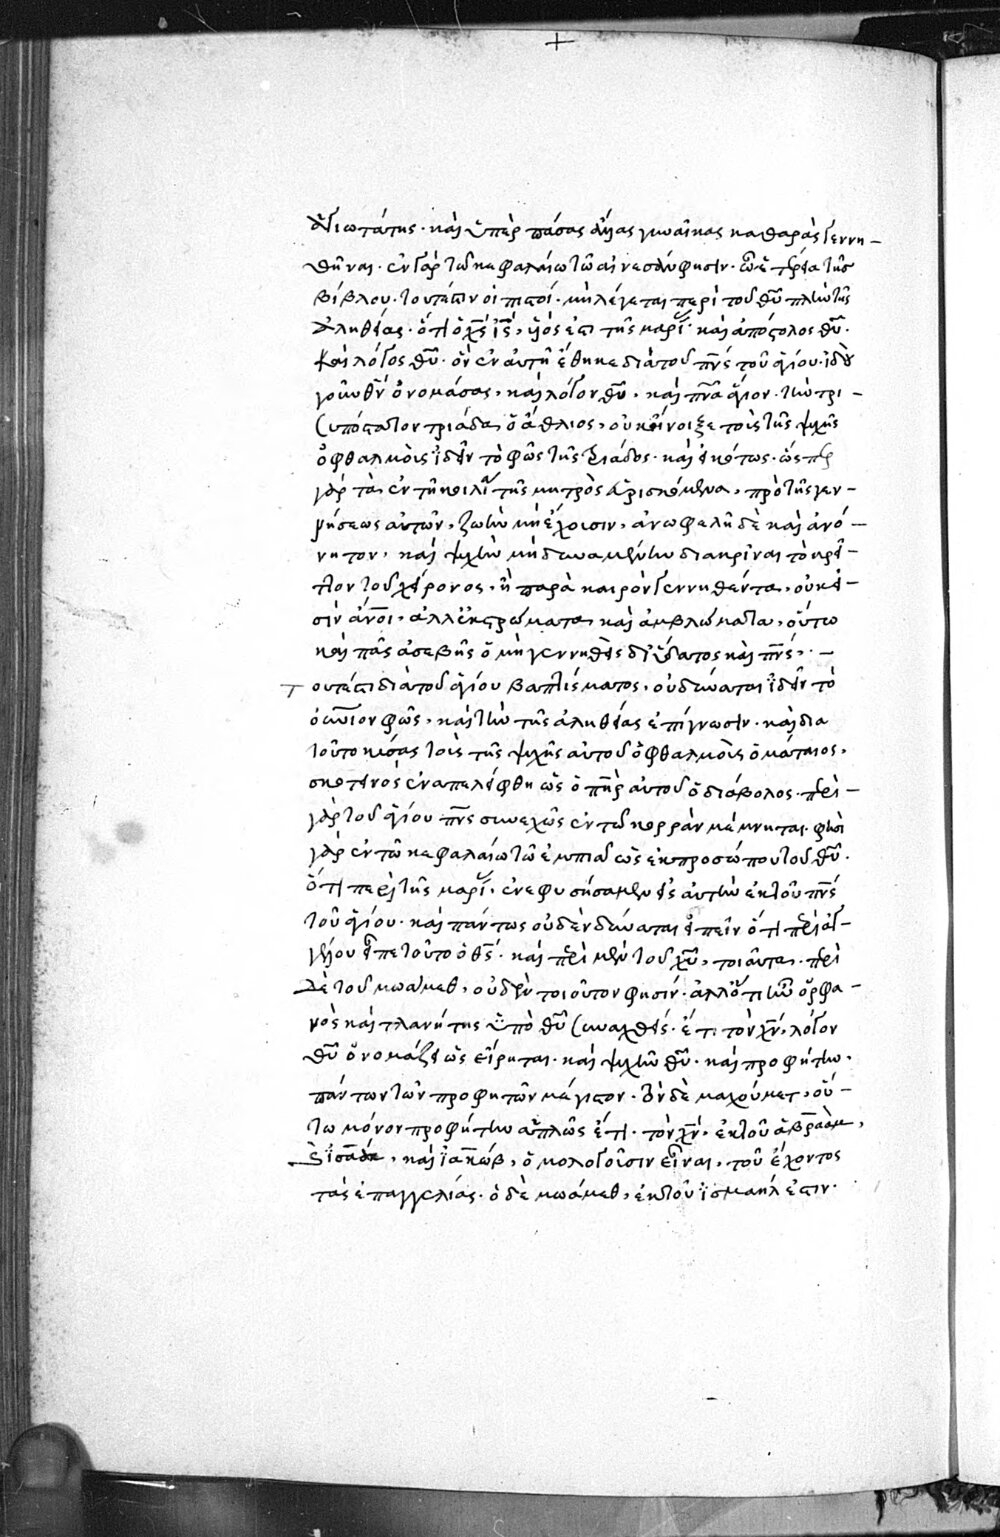 ἁγιωτάτης· καὶ ὑπὲρ πάσας ἁγίας γυναῖκας καθαρὰς γεννη-
θῆναι· ἐν γὰρ τῶ κεφαλαίω τῶ αἰνεσάφ φησίν· τῆς
βίβλου· τουτέστιν οἱ πιστοί· μὴ λέγεται περὶ τοῦ θῦ πλὴν τῆς
ἀληθείας· ὅτι ὁ χς ις, υἱός ἐστι τῆς μαρί· καὶ ἀπόστολος θῦ·
καὶ λόγος θῦ· ὃν ἐν αὐτῆ ἔθηκε διὰ τοῦ πνς τοῦ ἁγίου· ἰδοὺ
γοῦν θν ὀνομάσας, καὶ λόγον θῦ, καὶ πνα ἅγιον· τὴν τρι-
συπόστατον τριάδα ὁ ἄθλιος, οὐκ ἤνοιξε τοὺς τῆς ψυχῆς
ὀφθαλμοὺς ἰδεῖν τὸ φῶς τῆς τριάδος· καὶ εἰκότως· ὥσπερ
γὰρ τὰ ἐν τῆ κοιλία τῆς μητρὸς εὑρισκόμενα, πρὸ τῆς γεν-
νήσεως αὐτῶν, ζωὴν μὴ ἔχουσιν, ἀνωφελῆ δὲ καὶ ἀνό-
νητον, καὶ ψυχὴν μὴ δυναμένην διακρῖναι τὸ κρεῖ-
ττον τοῦ χείρονος, ἢ παρὰ καιρὸν γεννηθέντα, οὐκ εἰ-
σὶν ἄνοι, ἀλλ' ἐκτρώματα καὶ ἀμβλώματα, οὕτω
καὶ πᾶς ἀσεβὴς ὁ μὴ γεννηθεὶς δι' ὕδατος καὶ πνς, -
τουτέστι διὰ τοῦ ἁγίου βαπτίσματος, οὐ δύναται ἰδεῖν τὸ
αἰώνιον φῶς, καὶ τὴν τῆς ἀληθείας ἐπίγνωσιν· καὶ διὰ
τοῦτο μύσας τοὺς τῆς ψυχῆς αὐτοῦ ὀφθαλμοὺς ὁ μάταιος,
σκοτεινὸς ἐναπελείφθη ὡς ὁ πηρ αὐτοῦ ὁ διάβολος· περὶ
γὰρ τοῦ ἁγίου πνς συνεχῶς ἐν τῶ κορρὰν μέμνηται· φησὶ
γὰρ ἐν τῶ κεφαλαίω τῶ ἐμπιαδ ὡς ἐκ προσώπου τοῦ θῦ·
ὅτι περὶ τῆς μαρί· ἐνεφυσήσαμεν εἰς αὐτὴν ἐκ τοῦ πνς
τοῦ ἁγίου· καὶ πάντως οὐδὲν δύναται εἰπεῖν ὅτι περὶ ἀγ-
γέλου εἶπε τοῦτο ὁ θς· καὶ περὶ μὲν τοῦ χῦ, τοιαῦτα· περὶ
δὲ τοῦ μωάμεθ, οὐδὲν τοιοῦτον φησίν· ἀλλ' ὅτι ἦν ὀρφα-
νὸς καὶ πλανήτης ὑπὸ θῦ συναχθείς· ἔτι τὸν χν, λόγον
θῦ ὀνομάζει ὡς εἴρηται· καὶ ψυχὴν θῦ· καὶ προφήτην,
πάντων τῶν προφητῶν μέγιστον· τὸν δὲ μαχούμετ, οὕ-
τω μόνον προφήτην ἁπλῶς ἔτι· τὸν χν, ἐκ τοῦ ἀβραὰμ,
ἰσαὰκ, καὶ ἰακώβ, ὁμολογοῦσιν εἶναι, τοῦ ἔχοντος
τὰς ἐπαγγελίας· ὁ δὲ μωάμεθ, ἐκ τοῦ ἰσμαήλ ἐστιν·